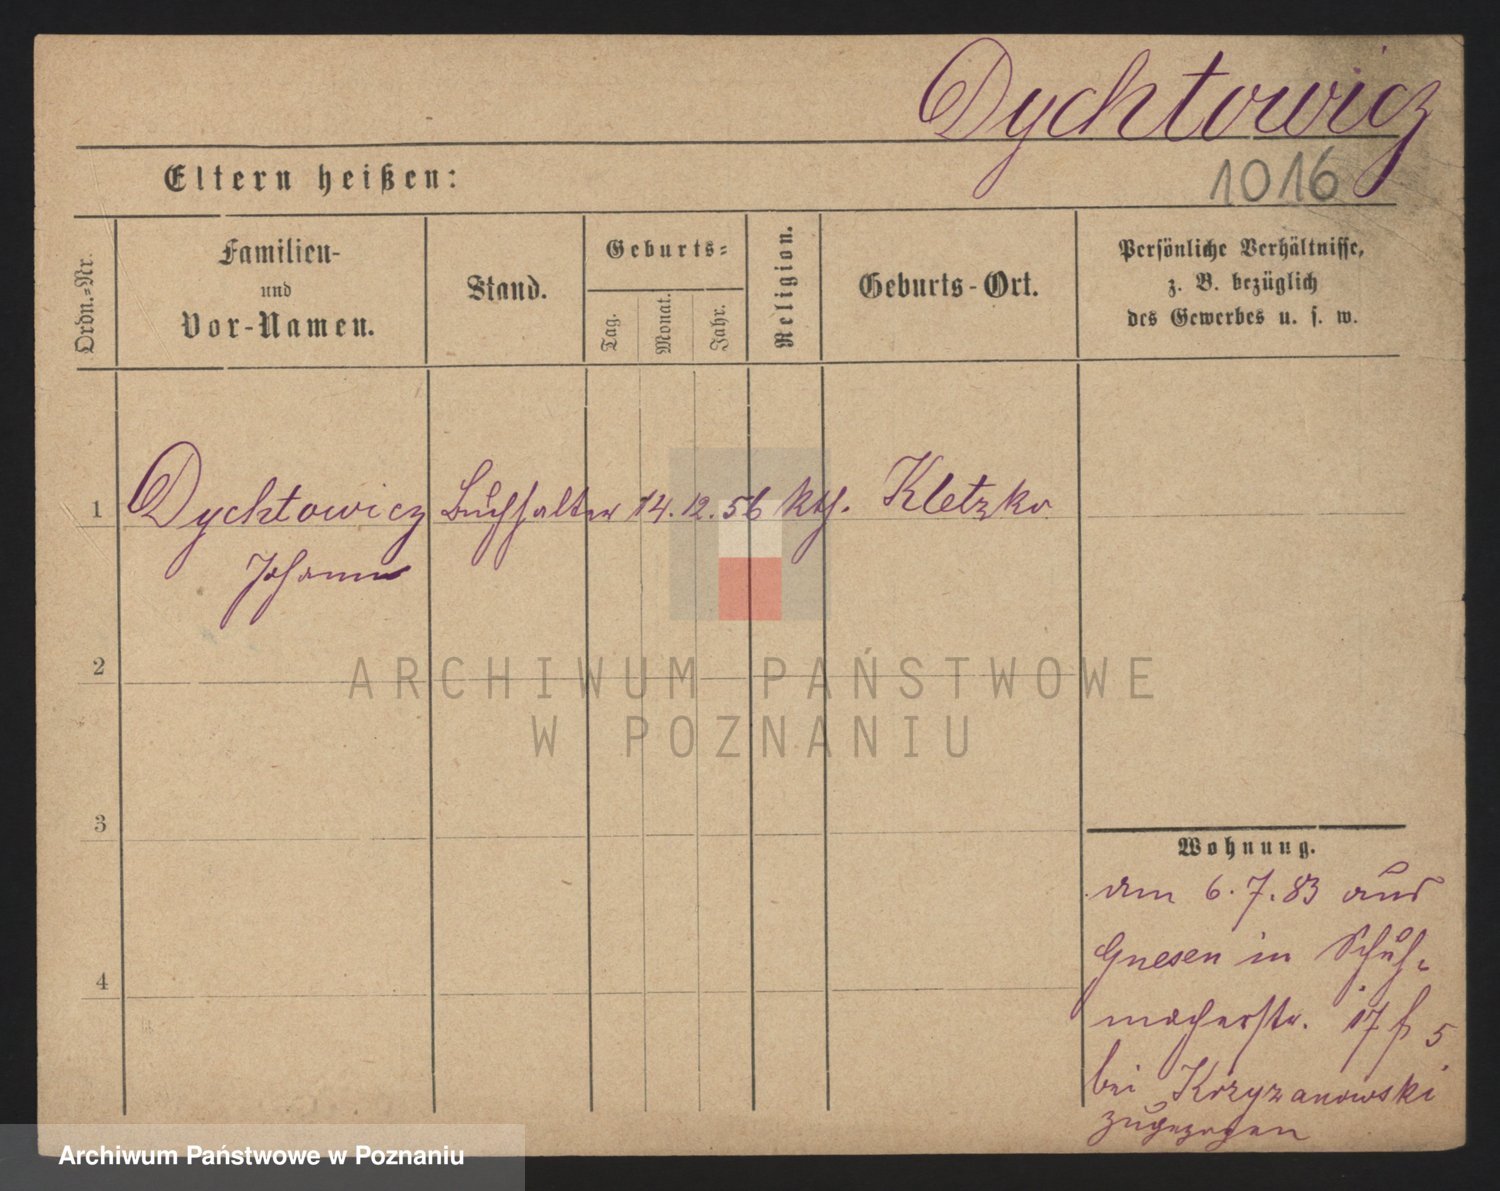 Dychtowicz
Eltern heißen:
1016
Ordn.-Nr.
Familien-
und
Vor-Namen.
Stand.
Geburts-
Tag.
Monat.
Jahr.
Religion.
Geburts-Ort.
Persönliche Verhältnisse,
z. B. bezüglich
des Gewerbes u. s. w.
1 Dychtowicz Buchhalter 14. 12. 56 kth. Kletzko
Johann
2
ARCHIWUM PAŃSTWOWE
W POZNANIU
3
4
Wohnung.
am 6. 7. 83 aus
Gnesen in Schuh-
macherstr. 17 5
bei Krzyzanowski
zugezogen
Archiwum Państwowe w Poznaniu